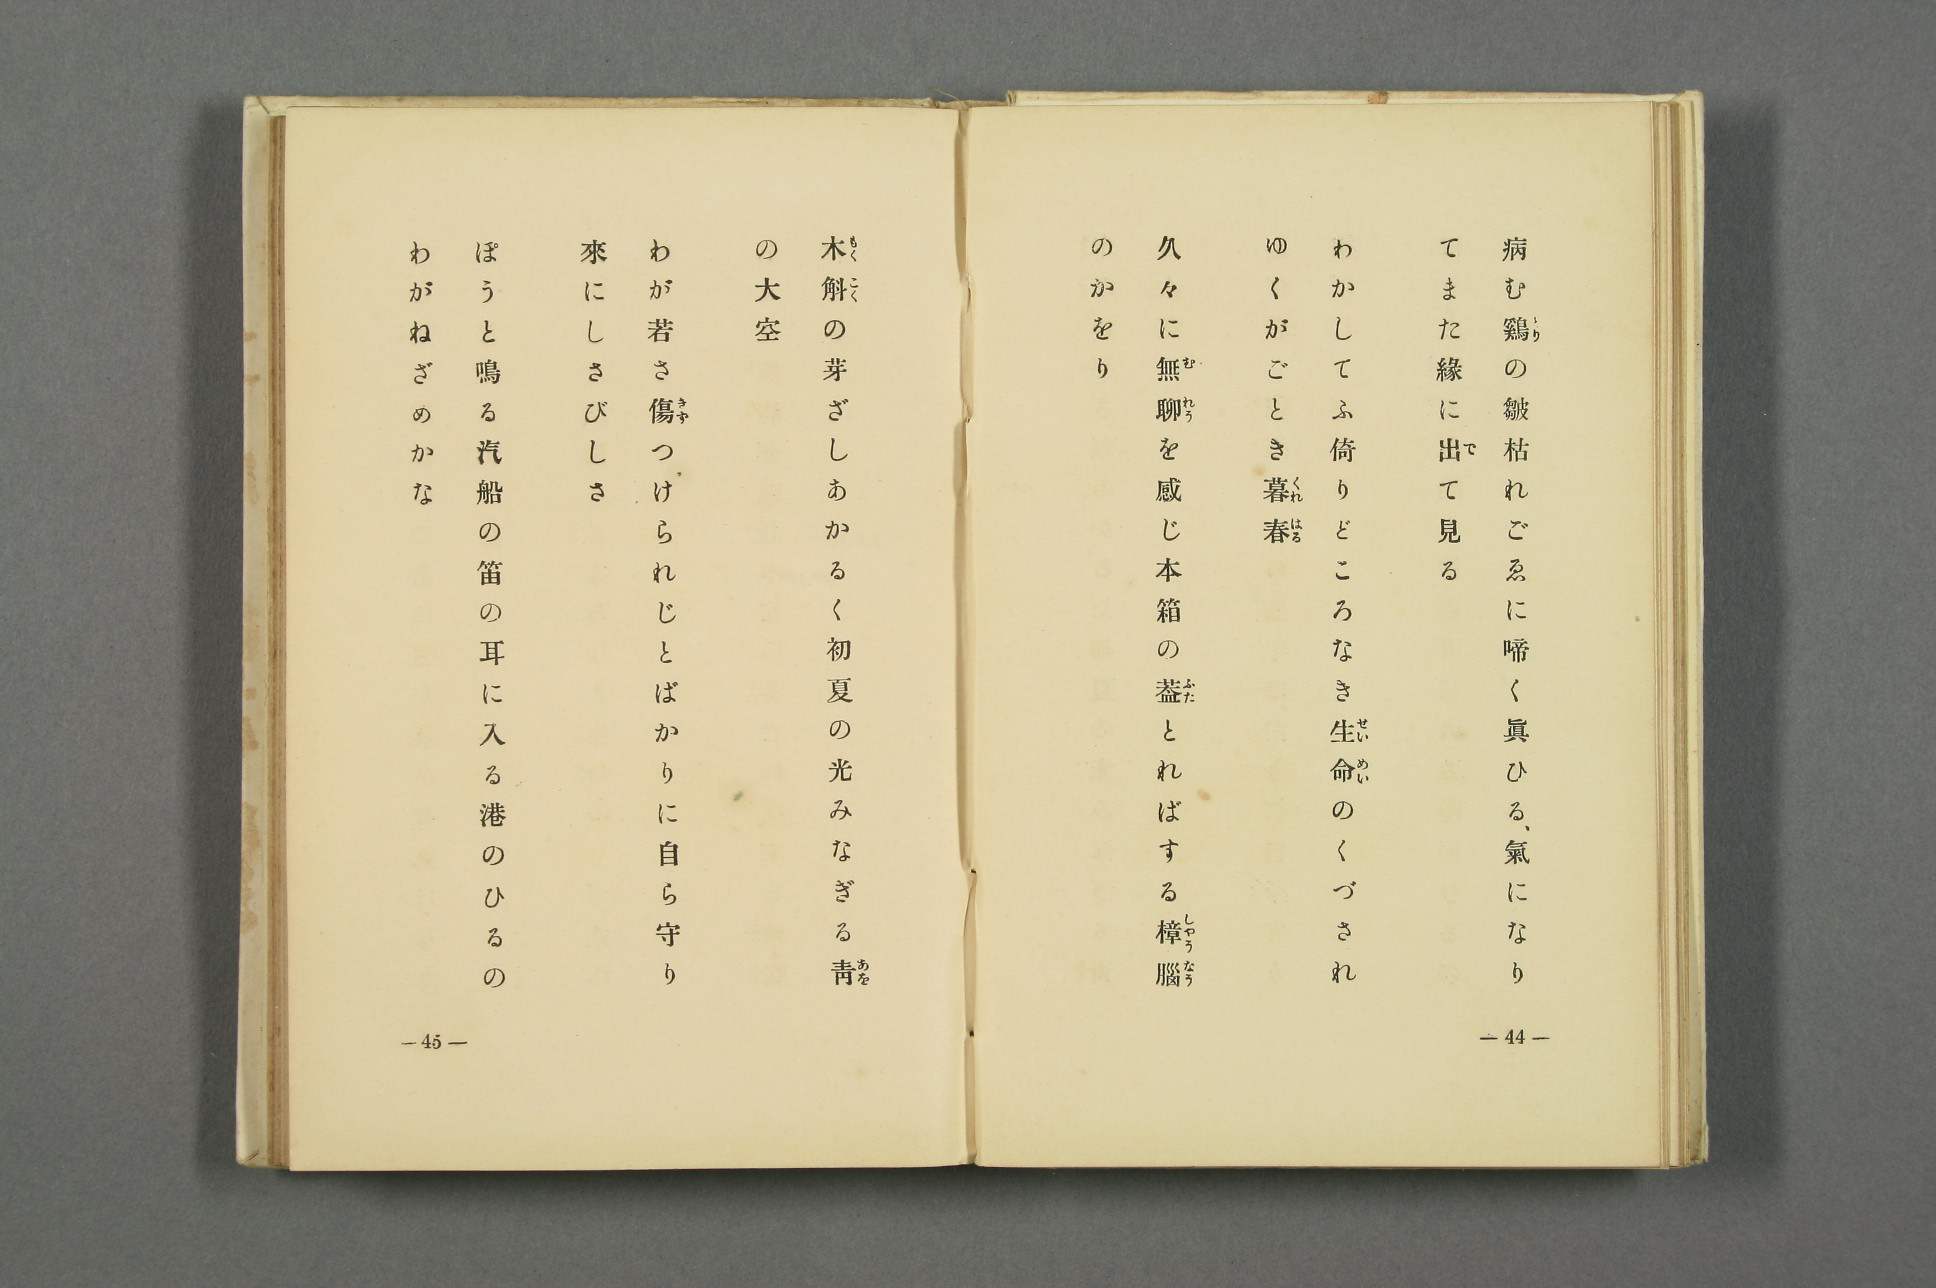 病む鷄の皺枯れごゑに啼く眞ひる、氣になり
てまた緣に出て見る
わかしてふ倚りどころなき生命のくづされ
ゆくがごとき暮春
久々に無聊を感じ本箱の葢とればする樟腦
のかをり
— 44 —
木斛の芽ざしあかるく初夏の光みなぎる靑
の大空
わが若さ傷つけられじとばかりに自ら守り
來にしさびしさ
ぽうと鳴る汽船の笛の耳に入る港のひるの
わがねざめかな
— 45 —